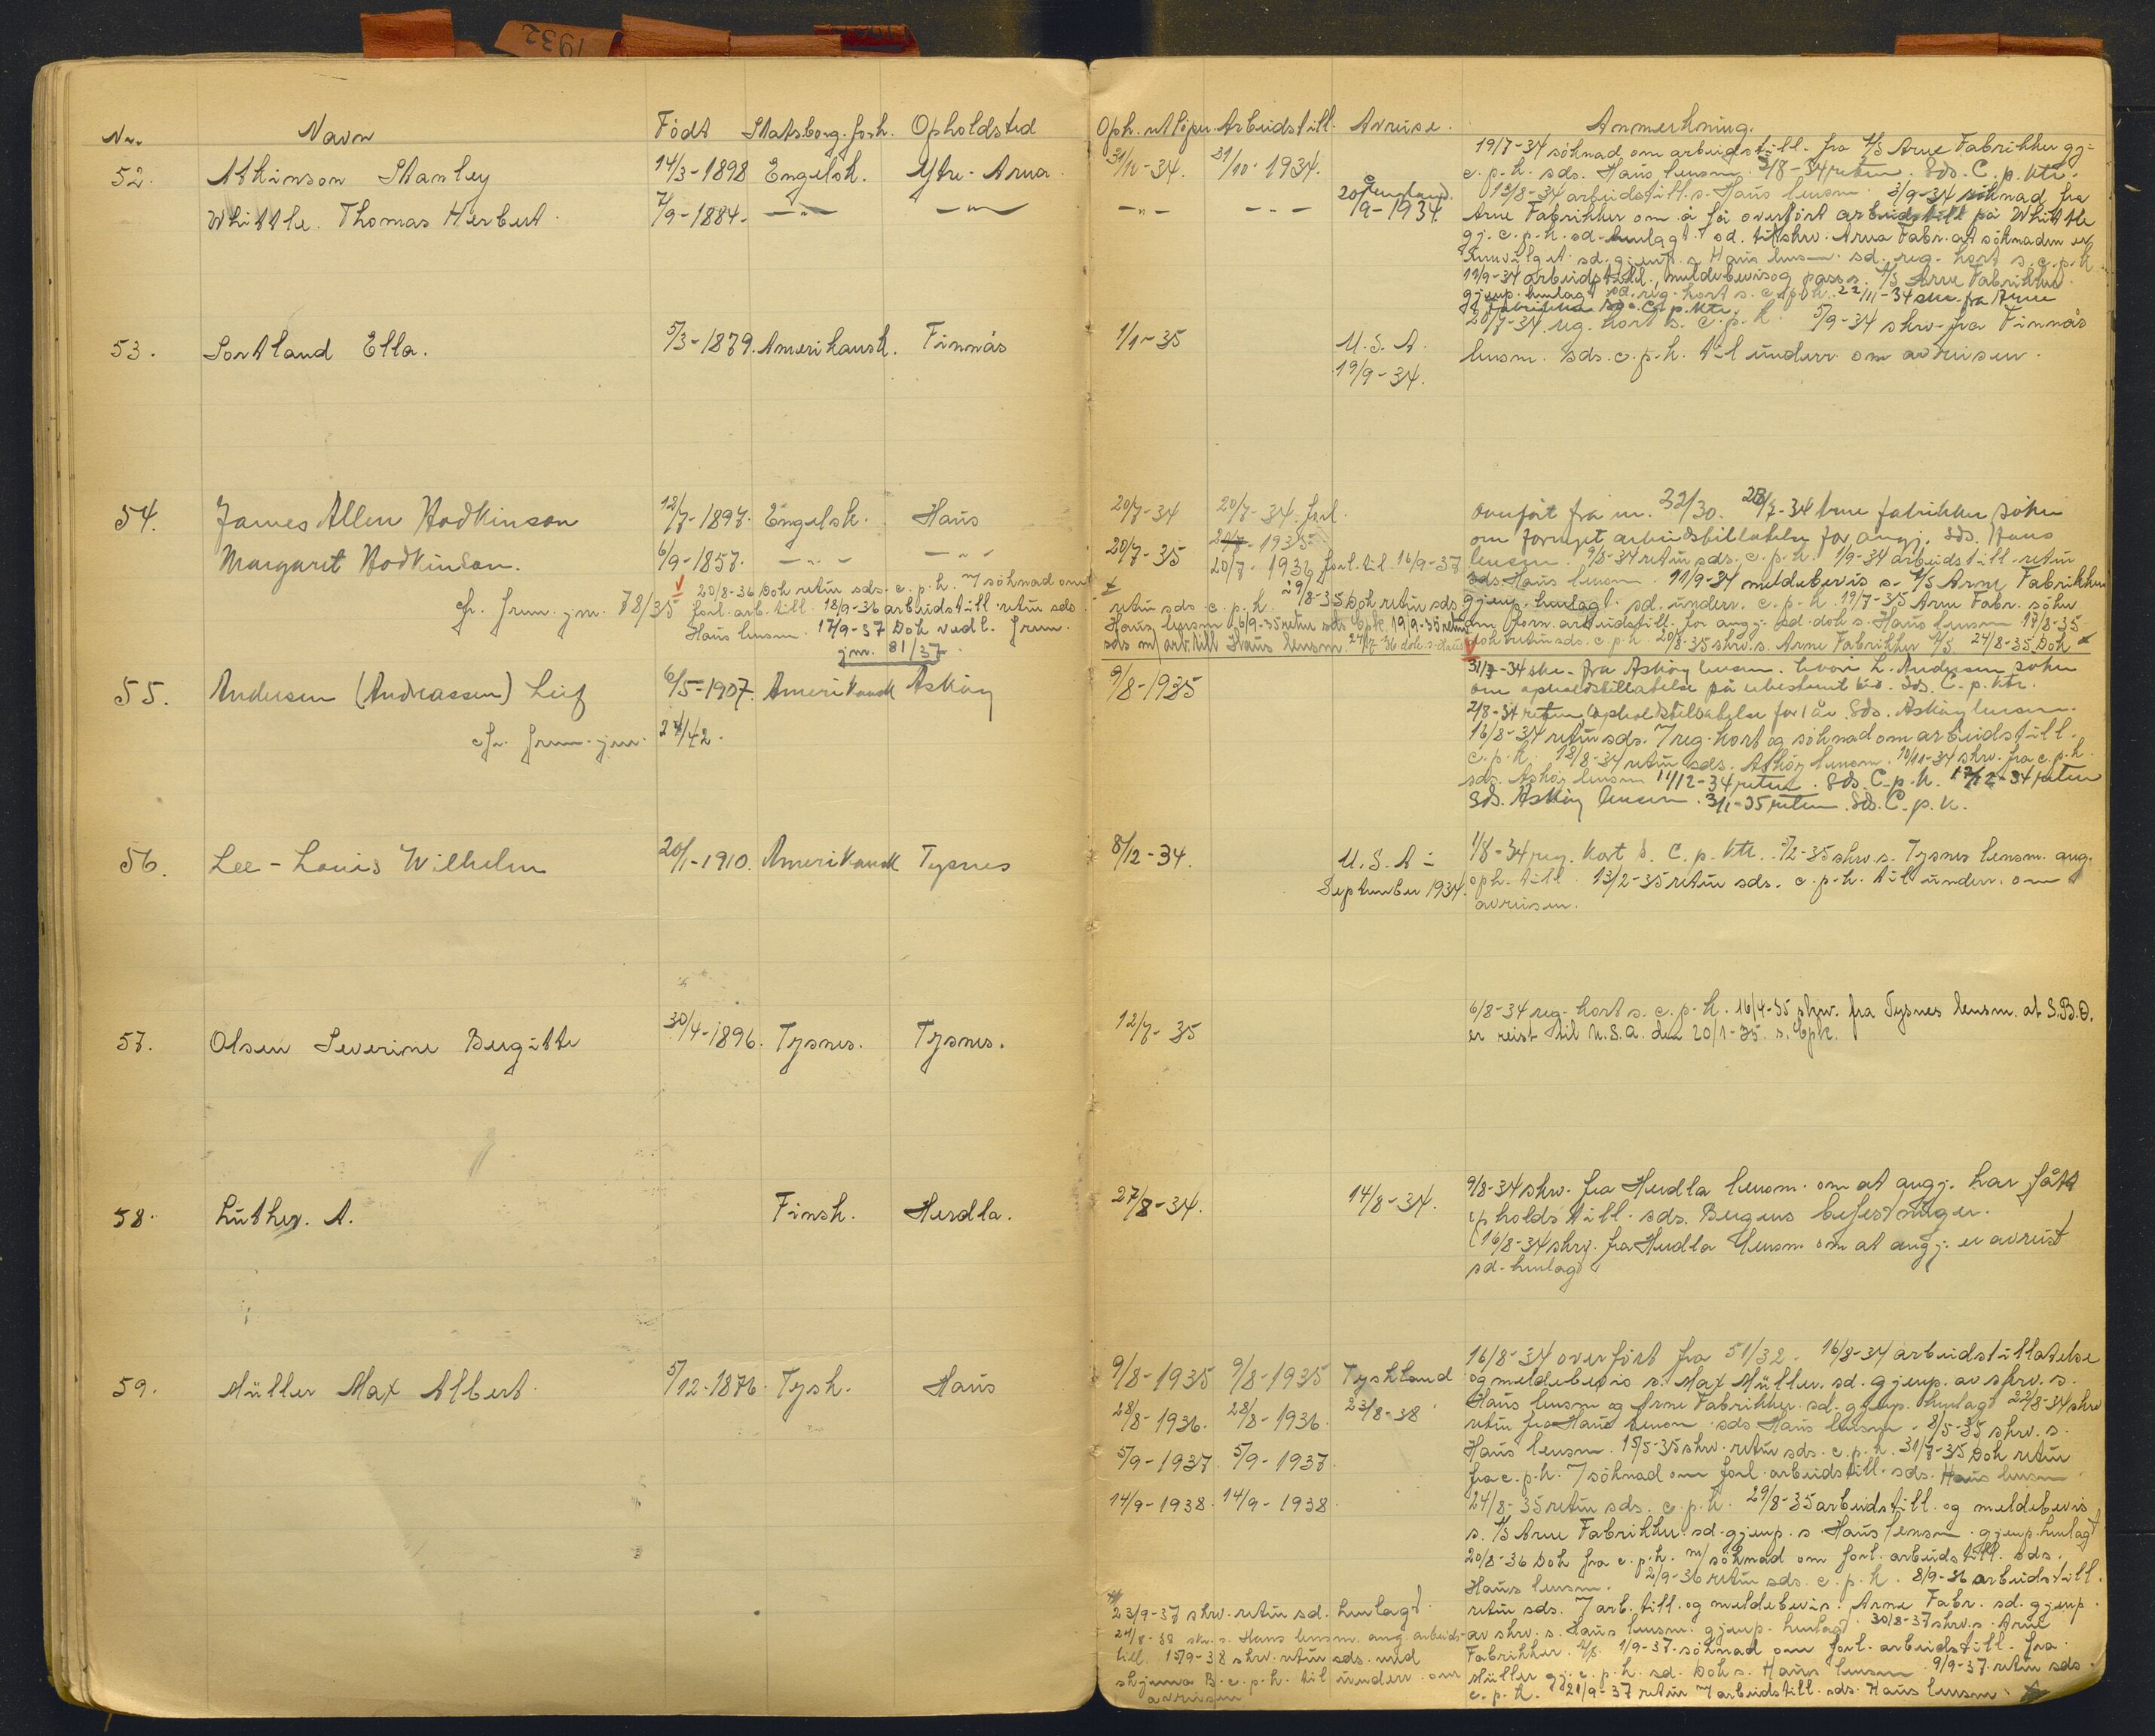 1932
Nr. Navn Född Statsborg.forh. Opholdsted Oph. utlöper. Arbeidstill. Avreise. Anmerkning.
52. Atkinson Stanley 14/3-1898 Engelsk. Ytre-Arna 31/10-34. 31/10-1934.
Whittle. Thomas Herbert. 7/9-1884. -„- -„- -„- -„- England 20/9-1934.
19/7-34 söknad om arbeidstill. fra A/S Arne Fabrikker gj=
c.p.k. sds. Haus lensm. 3/8-34 retur. Sds. C.p.ktr.
13/8-34 arbeidstill. s. Haus lensm. 3/9-34 söknad fra
Arne Fabrikker om å få overfört arbeidstill på Whittle
gj. c.p.k. sd. henlagt. sd. tilskrv. Arna Fabr. at söknaden er
innvilget sd. gjenp. s. Haus lensm. sd. reg. kort s. c.p.k.
19/9-34 arbeidstill., meldebevis og pass s. A/S Arne Fabrikker
gjenp. henlagt sd. reg. kort s. c.p.k. 22/11-34 skr. fra Arne
Fabrikker sds. C.p.ktr.
53. Sortland Ella. 5/3-1879. Amerikansk. Finnås 1/1-35 U.S.A. 19/9-34.
20/7-34 reg. kort s. c.p.k. 5/9-34 skrv. fra Finnås
lensm. sds. c.p.k. til underr. om avreisen.
54. James Allen Hodkinson 12/7-1897. Engelsk. Haus 20/7-34 20/7-34. forl.
Margaret Hodkinson. 6/9-1857. -„- -„- 20/7-35 20/7-1935
20/7-1936 forl. til 16/9-37
overfört fra nr. 32/30. 28/7-34 Arne fabrikker söker
om fornyet arbeidstillatelse for angj. sds. Haus
lensm. 9/8-34 retur sds. c.p.k. 1/9-34 arbeidstill. retur
sds. Haus lensm. 11/9-34 meldebevis s. A/S Arne Fabrikker
gjenp. henlagt. sd. underr. c.p.k. 19/7-35 Arne Fabr. söker
om forn. arbeidstill. for angj. sd. dok s. Haus lensm 17/8-35
dok retur sds. c.p.k. 20/8-35 skrv. s. Arne Fabrikker A/S. 24/8-35 Dok
retur sds. c.p.k. 29/8-35 Dok retur sds
Haus lensm 16/9-35 retur sds Cpk. 19/9-35 retur
sds m/ arb. till Haus lensm. 27/7-36 dok. s. Haus
20/8-36 Dok retur sds. c.p.k. m/ söknad om
cfr. frem. jnr. 78/35 forl. arb. till. 18/9-36 arbeidstill. retur sds
Haus lensm. 17/9-37 Dok vedl. frem.
jnr. 81/37.
55. Andersen (Andreassen) Leif 6/5-1907. Amerikansk Asköy 9/8-1935
cfr. frem. jnr. 24/42.
31/7-34 skr. fra Asköy lensm. hvori L. Andersen söker
om opholdstillatelse på ubestemt tid. Sds. C.p.ktr.
2/8-34 retur opholdstillatelse for 1 år. Sds. Asköy lensm.
16/8-34 retur sds. 7 reg. kort og söknad om arbeidstill.
c.p.k. 18/8-34 retur sds. Asköy lensm. 10/11-34 skrv. fra c.p.k.
sds. Asköy lensm 11/12-34 retur. Sds. C.p.k. 17/12-34 retur
Sds. Asköy lensm. 3/1-35 retur. Sds. C.p.k.
56. Lee-Louis Wilhelm 20/1-1910. Amerikansk Tysnes 8/12-34. U.S.A - September 1934.
1/8-34 reg. kort s. C.p.ktr. 5/2-35 skrv. s. Tysnes lensm. ang.
oph. till. 13/2-35 retur sds. c.p.k. til underr. om
avreisen.
57. Olsen Severine Bergitte 30/4-1896. Tysnes. Tysnes. 12/7-35
6/8-34 reg. kort s. c.p.k. 16/4-35 skrv. fra Tysnes lensm. at S.B.O.
er reist til U.S.A. den 20/1-35. s. Cpk.
58. Luther. A. Finsk. Herdla. 27/8-34. 14/8-34.
9/8-34 skrv. fra Herdla lensm. om at angj. har fått
opholds till. sds. Bergens befestninger.
16/8-34 skrv. fra Herdla lensm. om at angj. er avreist
sd. henlagt
59. Müller Max Albert. 5/12-1876. Tysk. Haus 9/8-1935 9/8-1935 Tyskland
28/8-1936. 28/8-1936. 23/8-38
5/9-1937. 5/9-1937.
14/9-1938. 14/9-1938.
16/8-34 overfört fra 51/32. 16/8-34 arbeidstillatelse
og meldebevis s. Max Müller. sd. gjenp. av skrv. s.
Haus lensm og Arne Fabrikker. sd. gjenp. henlagt 22/8-34 skrv
retur fra Haus lensm. sds Haus lensm. 8/5-35 skrv. s.
Haus lensm. 15/5-35 skrv. retur sds. c.p.k. 31/7-35 Dok retur
fra c.p.k. 7 söknad om forl. arbeidstill. sds. Haus lensm.
24/8-35 retur sds. c.p.k. 29/8-35 arbeidstill. og meldebevis
s. A/S Arne Fabrikker. sd. gjenp. s. Haus lensm. gjenp. henlagt
20/8-36 Dok fra c.p.k. m/ söknad om forl. arbeidstill. sds.
Haus lensm. 2/9-36 retur sds. c.p.k. 8/9-36 arbeidstill.
retur sds. 7 arb. till. og meldebevis. Arne Fabr. sd. gjenp.
av skrv. s. Haus lensm. gjenp. henlagt. 30/8-37 skrv. s. Arne
Fabrikker. A/S. 1/9-37 söknad om forl. arbeidstill. fra
Müller gj. c.p.k. sd. Dok s. Haus lensm. 9/9-37 retur sds.
c.p.k. 21/9-37 retur 7 arbeidstill. sds. Haus lensm.
23/9-37 skrv. retur sd. henlagt.
24/8-38 skr. s. Haus lensm. ang. arbeids-
till. 15/9-38 skrv. retur sds. med
skjema B. c.p.k. til underr. om
avreisen